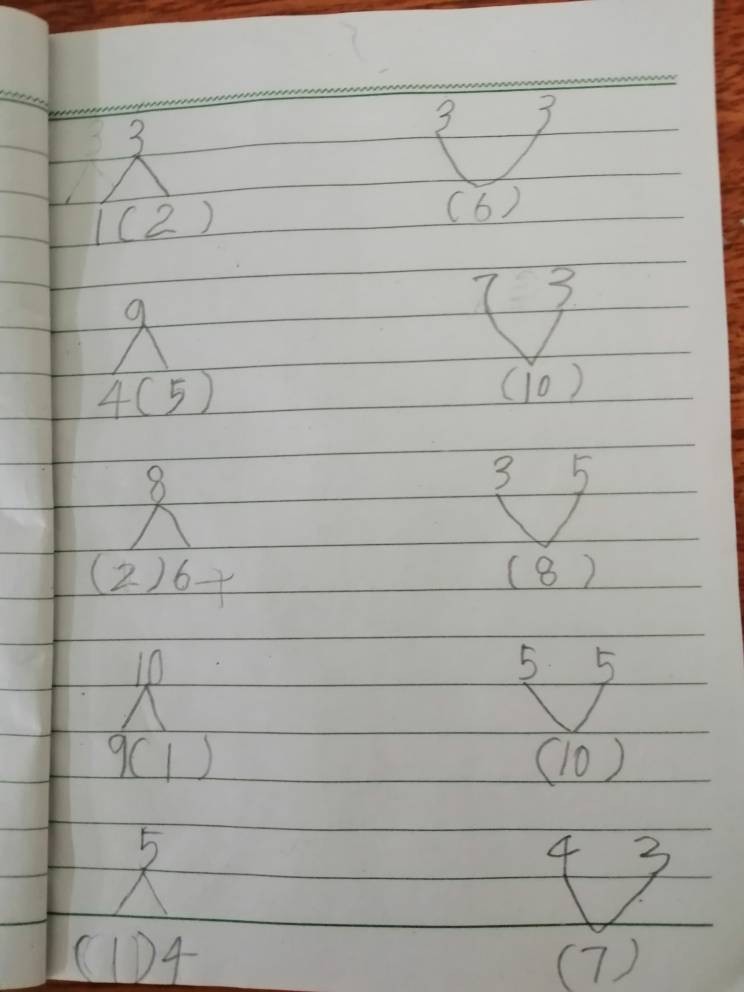 3 3 3
1(2) (6)
9 7 3
4(5) (10)
8 3 5
(2)6+ (8)
10 5 5
9(1) (10)
5 4 3
(1)4 (7)